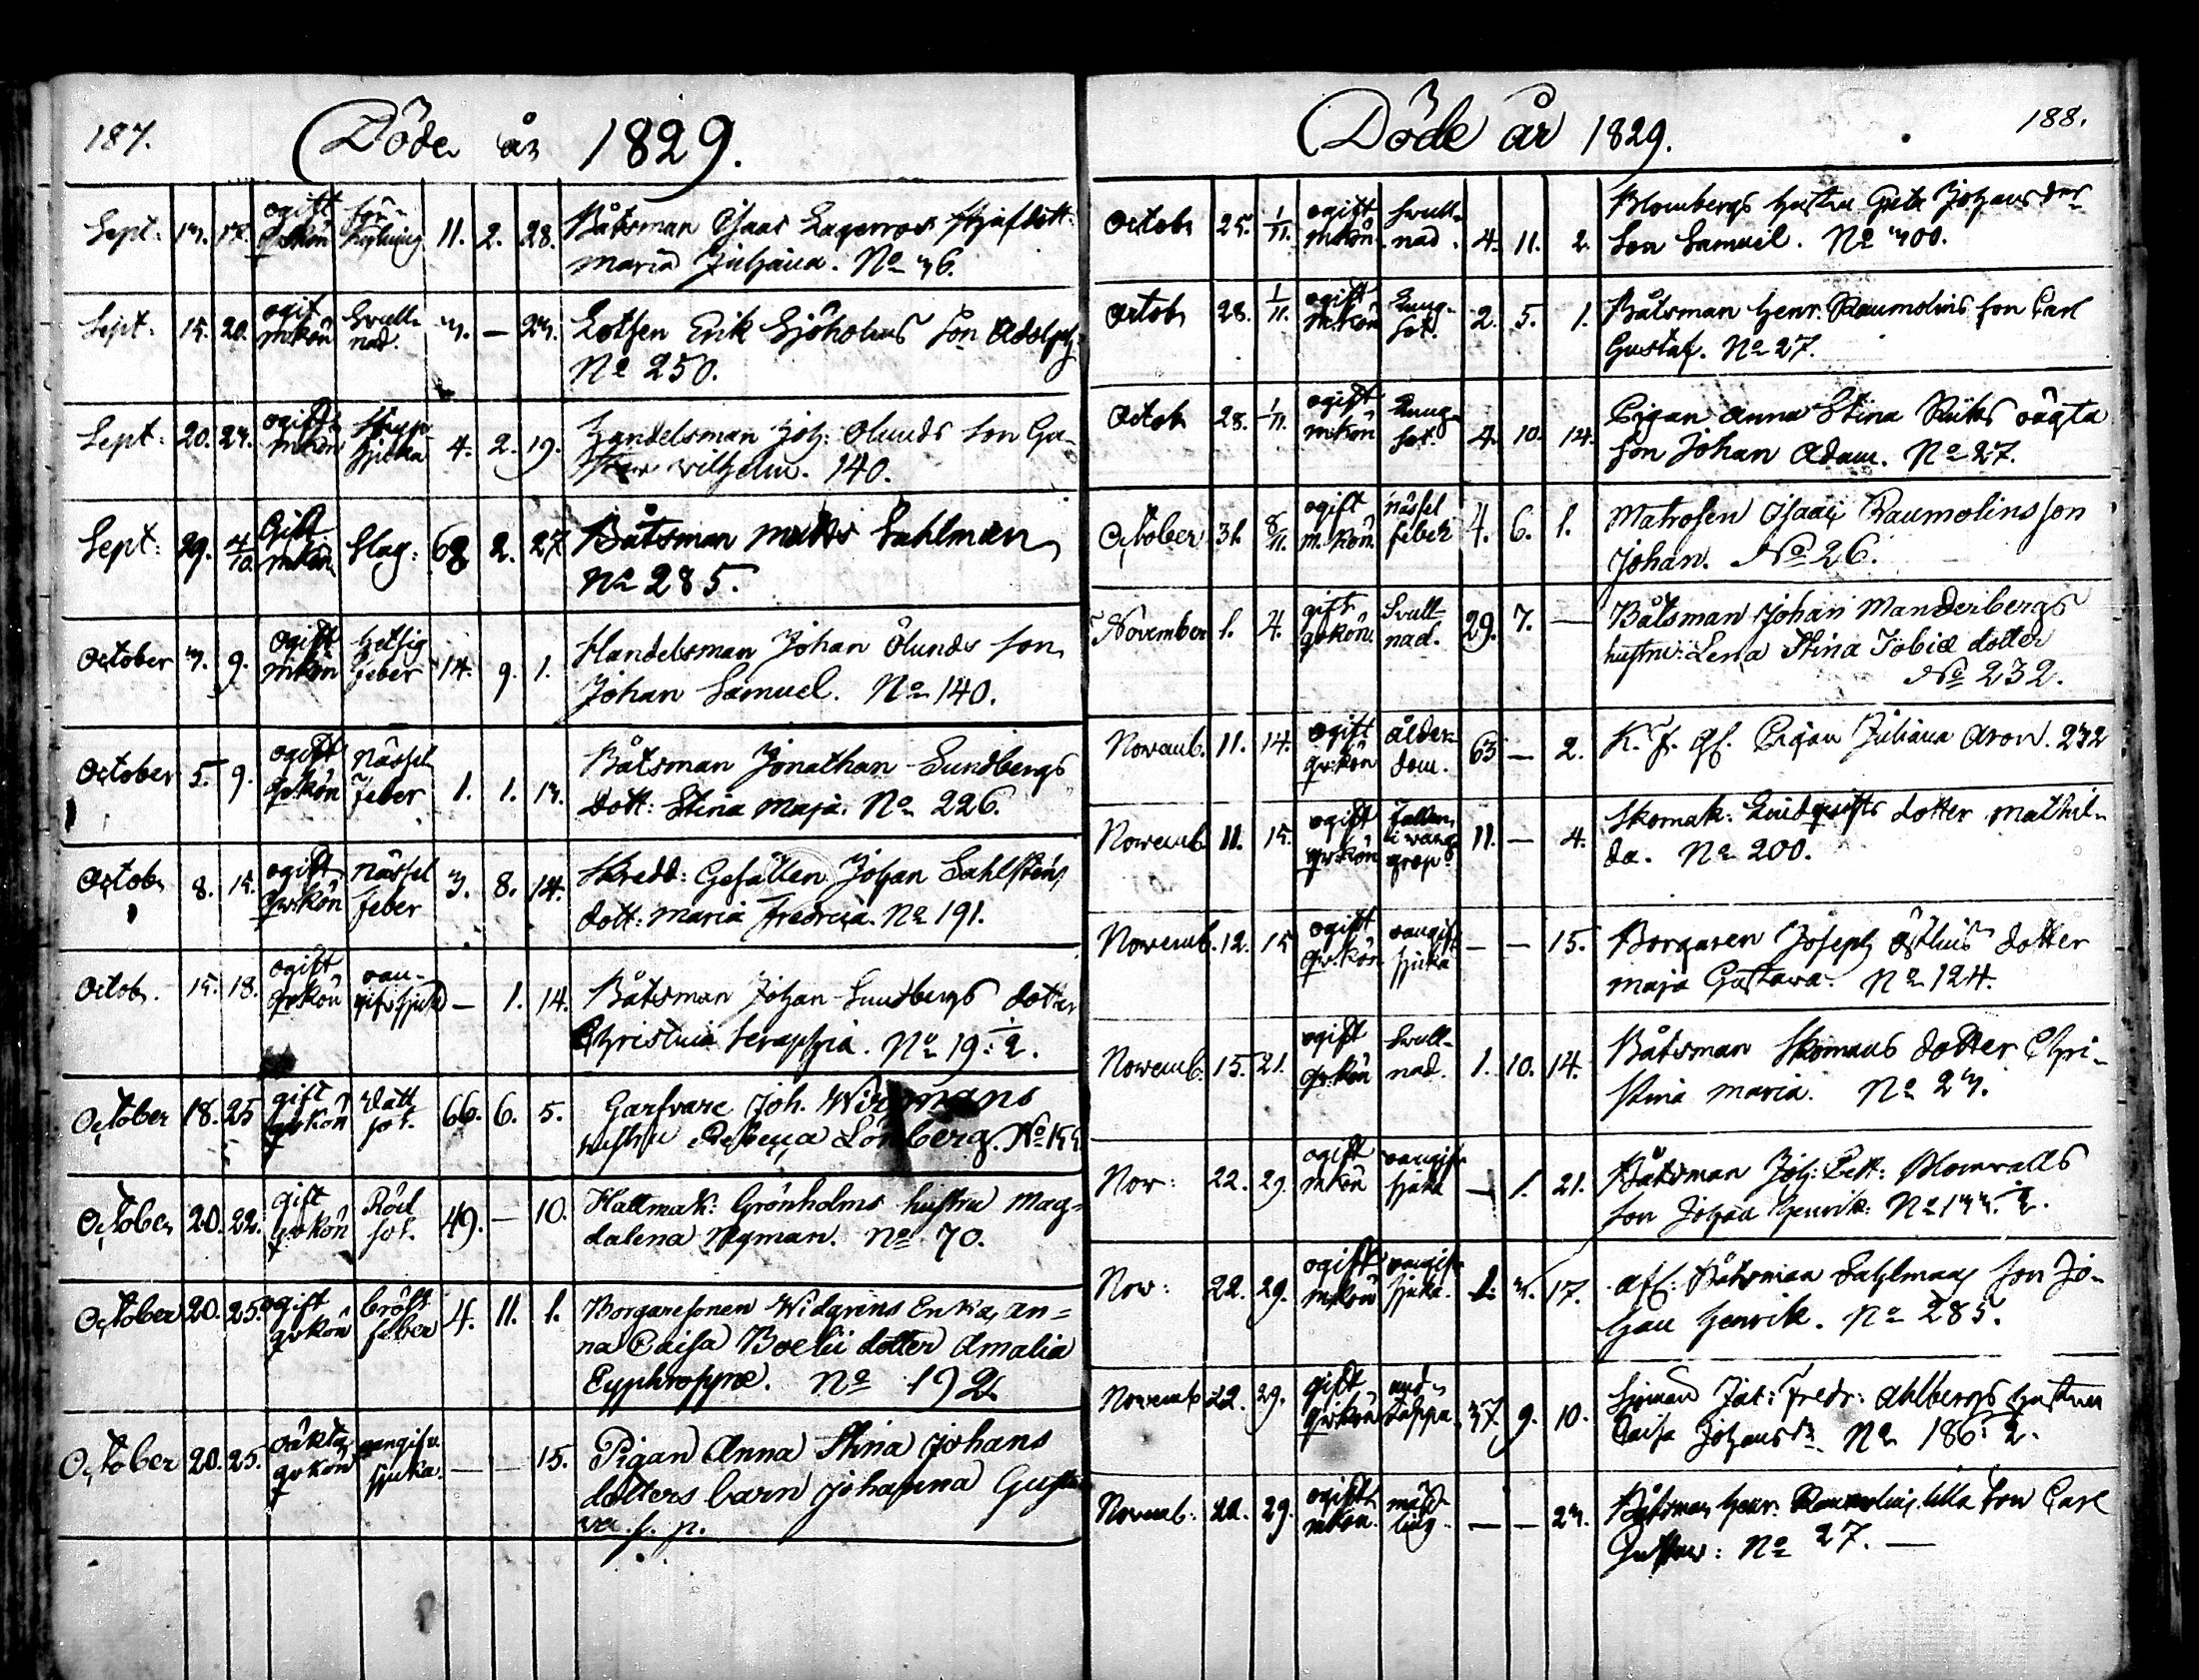 187.
Döde år 1829.
Sept: 13. ogift qvkön 11. 2. 28. Båtsman Isaac Lagerroos
Maria Juliana. No 36.
Sept: 15. 20. ogift mkön Svullnad. 3. — 23. Lotsen Erik Sjöholms Son Adolph
No 250.
Sept: 20. 27. ogift mkön 4. 2. 19. Handelsman Joh: Ölunds Son Gu-
Wilhelm. 140.
Sept: 29. 4/10. Gift mkön Slag: 68 2. 27 Båtsman Matts Sahlman
No 285.
October 3. 9. ogift mkön Hetsig feber 14. 9. 1. Handelsman Johan Ölunds Son
Johan Samuel. No 140.
October 5. 9. ogift qvkön Nässel feber 1. 1. 13. Båtsman Jonathan Sundbergs
dott: Stina Maja. No 226.
Octob. 8. 15. ogift qvkön Nässel feber 3. 8. 14. Skredd: Gesällen Johan Sahlstens
dott: Maria Fredrica. No 191.
Octob. 15. 18. ogift qvkön — 1. 14. Båtsman Johan Sundbergs dotter
Christina Seraphia. No 19: 1/2.
October 18. 25 gift qvkön Vatt sot. 66. 6. 5. Garfvare Joh. Wirmans
Rebecca Lönberg. No
October 20. 22. gift qvkön Röd sot. 49. — 10. Hattmak: Grönholms hustru Mag-
dalena Nyman. No 70.
October 20. 25. ogift qvkön bröst feber 4. 11. 1. Borgaresonen Widgrens Enka, An=
na Caisa Boelii dotter Amalia
Euphrosyne. No 192
October 20. 25. oäkta qvkön — — 15. Pigan Anna Stina Johans
dotters barn Johanna Gusta
va. s. p.
188.
Döde år 1829.
Octobr 25. 1/11. ogift mkön. Svullnad. 4. 11. 2. Blombergs hustru Greta Johansdr
Son Samuel. No 300.
Octob 28. 1/11. ogift mkön Lungsot. 2. 5. 1. Båtsman Henr. Raumolins son Carl
Gustaf. No 27.
Octob 28. 1/11. ogift mkön Lungsot. 4. 10. 14. Pigan Anna Stina oägta
son Johan Adam. No 27.
October 31. 8/11. ogift m.kön. nässel feber 4. 6. 1. Matrosen Isaac Raumolins son
Johan. No 26.
November 1. 4. gift qvkön. Svullnad. 29. 7. — Båtsman Johan Manderbergs
hustru: Lena Stina Tobiæ dotter
No 232.
Novemb. 11. 14. ogift qvkön ålderdom. 63 — 2. Pigan Juliana Aron. 232
Novemb 11. 15. ogift qvkön 11. — 4. Skomak: Lindqvists dotter Mathil-
da. No 200.
Novemb. 12. 15 ogift qvkön — — 15. Borgaren Joseph dotter
Maja Gustava. No 124.
Novemb. 15. 21. ogift qvkön Svullnad. 1. 10. 14. Båtsman Skomans dotter Chri-
stina Maria. No 23.
Nov: 22. 29. ogift mkön — 1. 21. Båtsman Joh: Pett: Blomvalls
son Johan Henrik. No
Nov: 22. 29. ogift mkön 17. Afl: Båtsman Sahlmans son Jo-
han Henrik. No 285.
Novemb 22. 29. gift qvkön 37. 9. 10. Sjöman Jak: Fredr: Ahlbergs hustru
Caisa Johansdr. No 186: 1/2.
Novemb: 22. 29. ogift mkön. — — 23. Båtsman Henr. Raumolins lilla son Carl
Gustaw: No 27. —